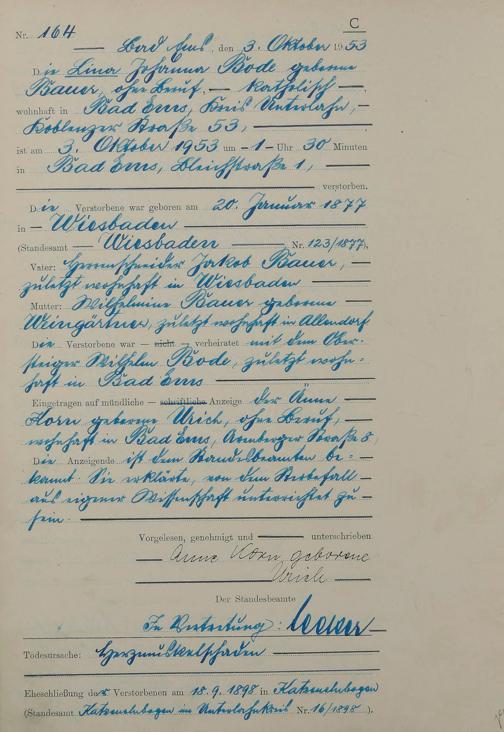 C
Nr. 164
Bad Ems, den 3. Oktober 1953
Die Lina Johanna Bode geborene
Bauer, ohne Beruf, — katholisch —,
wohnhaft in Bad Ems, Kreis Unterlahn, —
Koblenzer Straße 53, —
ist am 3. Oktober 1953 um — 1 — Uhr 30 Minuten
in Bad Ems, Bleichstraße 1, —
verstorben.
Die Verstorbene war geboren am 20. Januar 1877
in — Wiesbaden —
(Standesamt — Wiesbaden — Nr. 123/1877),
Vater: Herrenschneider Jakob Bauer, —
zuletzt wohnhaft in Wiesbaden —
Mutter: Wilhelmine Bauer geborene —
Weingärtner, zuletzt wohnhaft in Allendorf
Die Verstorbene war — nicht — verheiratet mit dem Ober-
steiger Wilhelm Bode, zuletzt wohn-
haft in Bad Ems —
Eingetragen auf mündliche — schriftliche Anzeige der Änne —
Korn geborene Urich, ohne Beruf, —
wohnhaft in Bad Ems, Arenberger Straße 8,
Die Anzeigende ist dem Standesbeamten be- —
kannt. Sie erklärte, von dem Sterbefall —
aus eigener Wissenschaft unterrichtet zu —
sein. —
Vorgelesen, genehmigt und — unterschrieben
— Änne Korn geborene
Urich —
Der Standesbeamte
In Vertretung:
Todesursache: Herzmuskelschaden —
Eheschließung der Verstorbenen am 18.9.1898 in Katzenelnbogen
(Standesamt Katzenelnbogen im Unterlahnkreis Nr. 16/1898 ).